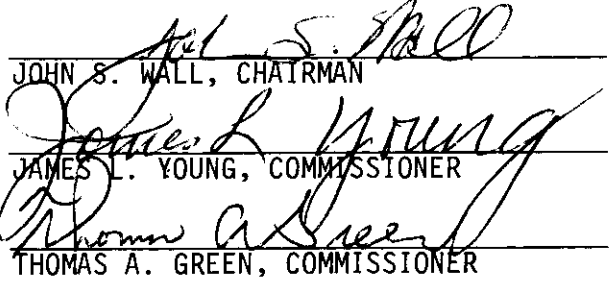 John S. Wall
JOHN S. WALL, CHAIRMAN
James L Young
JAMES L. YOUNG, COMMISSIONER
Thomas A Green
THOMAS A. GREEN, COMMISSIONER